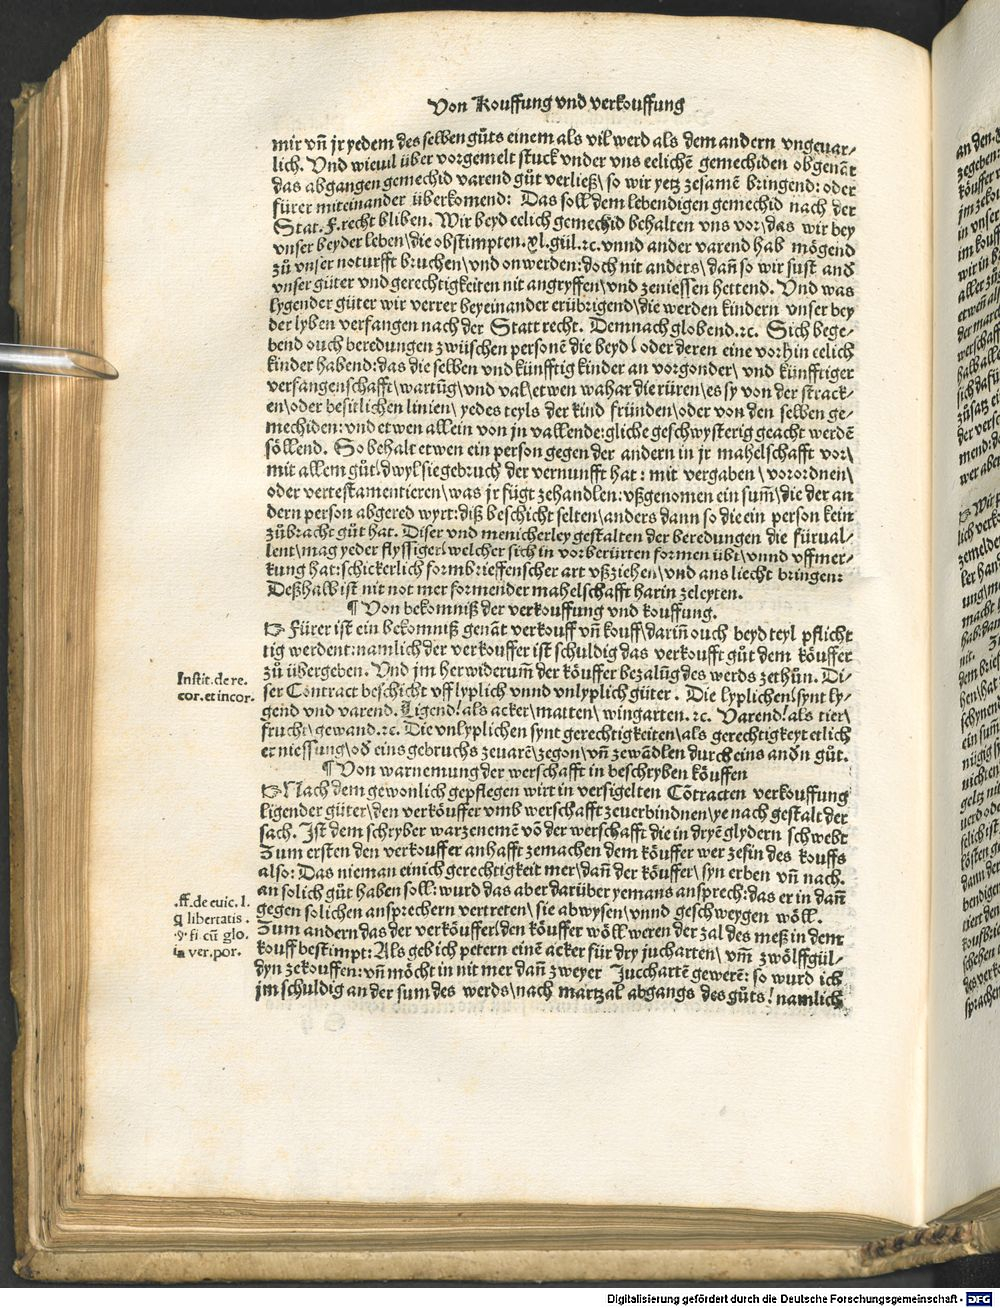 Von Kouffung vnd verkouffung
mir vn̄ jr yedem des selben gůts einem als vil werd als dem andern vngeuar⸗
lich. Vnd wieuil über vorgemelt stuck vnder vns eelichē gemechiden obgenāt
das abgangen gemechid varend gůt verließ\ so wir yetz zesamē bringend: oder
fürer miteinander überkomend: Das soll dem lebendigen gemechid nach der
Stat. F. recht bliben. Wir beyd eelich gemechid behalten vns vor\das wir bey
vnser beyder leben\die obstimpten.xl.gül.ꝛc.vnnd ander varend hab mögend
zů vnser noturfft bruchen\vnd onwerden:doch nit anders\dañ so wir sust and
vnser güter vnd gerechtigkeiten nit angryffen\vnd zeniessen hettend. Vnd was
lygender güter wir verrer beyeinander erübrigend\die werden kindern vnser bey
der lyben verfangen nach der Statt recht. Demnach globend.ꝛc. Sich bege⸗
bend ouch beredungen zwüschen personē die beyd\ oder deren eine vorhin eelich
kinder habend:das die selben vnd künfftig kinder an vorgonder\ vnd künfftiger
verfangenschafft\wartūg\vnd val\etwen wahar die rüren\es sy von der strack⸗
en\oder besitlichen linien\ yedes teyls der kind fründen\oder von den selben ge⸗
mechiden:vnd etwen allein von jn vallende:gliche geschwysterig geacht werdē
söllend. So behalt etwen ein person gegen der andern in jr mahelschafft vor\
mit allem gůt\dwyl sie gebruch der vernunfft hat: mit vergaben\ verordnen\
oder vertestamentieren\was jr fügt zehandlen:vßgenomen ein sum̄\die der an
dern person abgered wyrt:diß beschicht selten\anders dann so die ein person kein
zůbracht gůt hat. Diser vnd menicherley gestalten der beredungen die fürual⸗
lent\mag yeder flyssiger\welcher sich in vor berürten formen übt\vnnd vffmer⸗
kung hat:schickerlich form brieffenscher art vßziehen\vnd ans liecht bringen:
Deßhalb ist nit not mer formen der mahelschafft harin zeleyten.
¶ Von bekomniß der verkouffung vnd kouffung.
☞ Fürer ist ein bekomniß genāt verkouff vn̄ kouff\darin̄ ouch beyd teyl pflicht
tig werdent:namlich der verkouffer ist schuldig das verkoufft gůt dem köuffer
zů übergeben. Vnd jm herwiderum̄ der köuffer bezalūg des werds zethůn. Di⸗
ser Contract beschicht vff lyplich vnnd vnlyplich güter. Die lyplichen\synt ly⸗
gend vnd varend. Ligend\als acker\matten\ wingarten.ꝛc. Varend\als tier\
frucht\gewand.ꝛc. Die vnlyplichen synt gerechtigkeiten\als gerechtigkeyt etlich
er niessung\od eins gebruchs zeuarē\zegon\vn̄ zewādlen durch eins andn gůt.
¶ Von warnemung der werschafft in beschryben köuffen
☞ Nach dem gewonlich gepflegen wirt in versigelten Cōtracten verkouffung
ligender güter\den verköuffer vmb werschafft zeuerbindnen\ye nach gestalt der
sach. Ist dem schryber warzenemē vō der werschafft die in dryē glydern schwebt
Zum ersten den verkouffer anhafft zemachen dem köuffer wer zesin des kouffs
also: Das nieman einich gerechtigkeit mer\dañ der köuffer\ syn erben vn̄ nach.
an solich gůt haben soll:wurd das aber darüber yemans ansprech:das er in dañ
gegen solichen ansprechern vertreten\ sie abwysen\vnnd geschweygen wöll.
Zum andern das der verköuffer\den köuffer wöll weren der zal des meß in dem
kouff bestimpt: Als geb ich petern einē acker für dry jucharten\ vm̄ zwölff gül⸗
dyn zekouffen:vn̄ möcht in nit mer dañ zweyer Juchartē gewerē: so wurd ich
jm schuldig an der sum des werds\nach martzal abgangs des gůts\ namlich
Instit. de re.
cor. et incor.
.ff. de euic. l.
q libertatis.
.y. fi cū glo.
in ver. por.
Digitalisierung gefördert durch die Deutsche Forschungsgemeinschaft - DFG